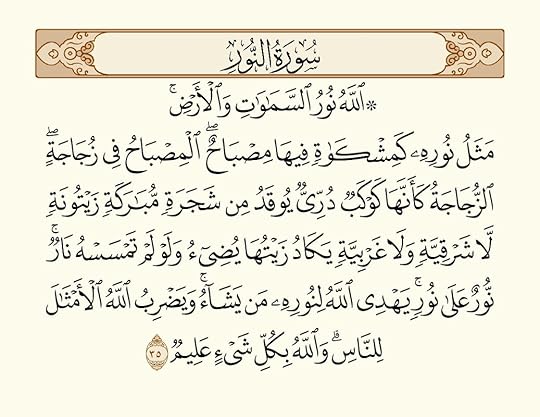 سُورَةُ النُّورِ
۞ ٱللَّهُ نُورُ ٱلسَّمَٰوَٰتِ وَٱلْأَرْضِ ۚ
مَثَلُ نُورِهِۦ كَمِشْكَوٰةٍ فِيهَا مِصْبَاحٌ ۖ ٱلْمِصْبَاحُ فِى زُجَاجَةٍ ۖ
ٱلزُّجَاجَةُ كَأَنَّهَا كَوْكَبٌ دُرِّىٌّ يُوقَدُ مِن شَجَرَةٍ مُّبَٰرَكَةٍ زَيْتُونَةٍ
لَّا شَرْقِيَّةٍ وَلَا غَرْبِيَّةٍ يَكَادُ زَيْتُهَا يُضِىٓءُ وَلَوْ لَمْ تَمْسَسْهُ نَارٌ ۚ
نُّورٌ عَلَىٰ نُورٍ ۗ يَهْدِى ٱللَّهُ لِنُورِهِۦ مَن يَشَآءُ ۚ وَيَضْرِبُ ٱللَّهُ ٱلْأَمْثَٰلَ
لِلنَّاسِ ۗ وَٱللَّهُ بِكُلِّ شَىْءٍ عَلِيمٌ ٣٥